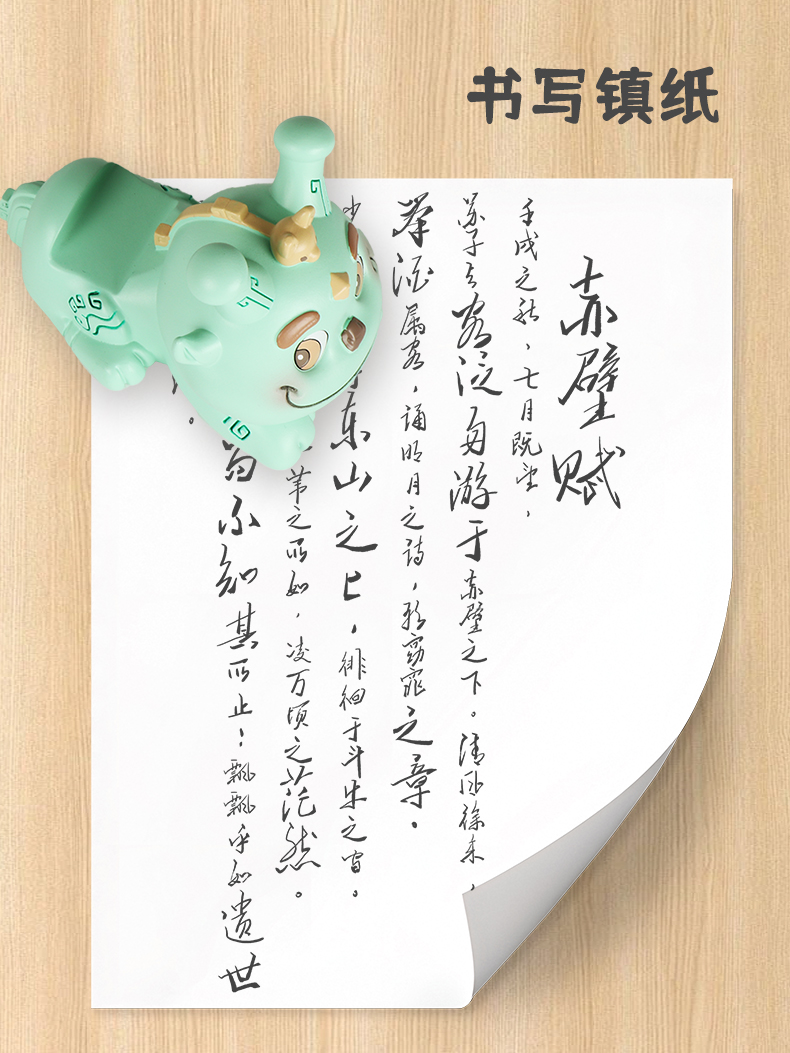 书写镇纸
赤壁赋
壬戌之秋，七月既望，
苏子与客泛舟游于赤壁之下。清风徐来，
举酒属客，诵明月之诗，歌窈窕之章。
少东山之上，徘徊于斗牛之间。
苇之所如，凌万顷之茫然。
不知其所止；飘飘乎如遗世